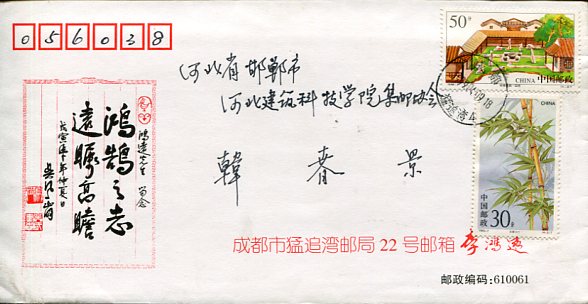 056038
河北省邯郸市
河北建筑科技学院集邮协会
韩春景
50分
CHINA 中国邮政
CHINA
中国邮政
30分
鸿鹄之志
远瞩高瞻
鸿达先生 留念
成都市猛追湾邮局22号邮箱 李鸿达
邮政编码:610061